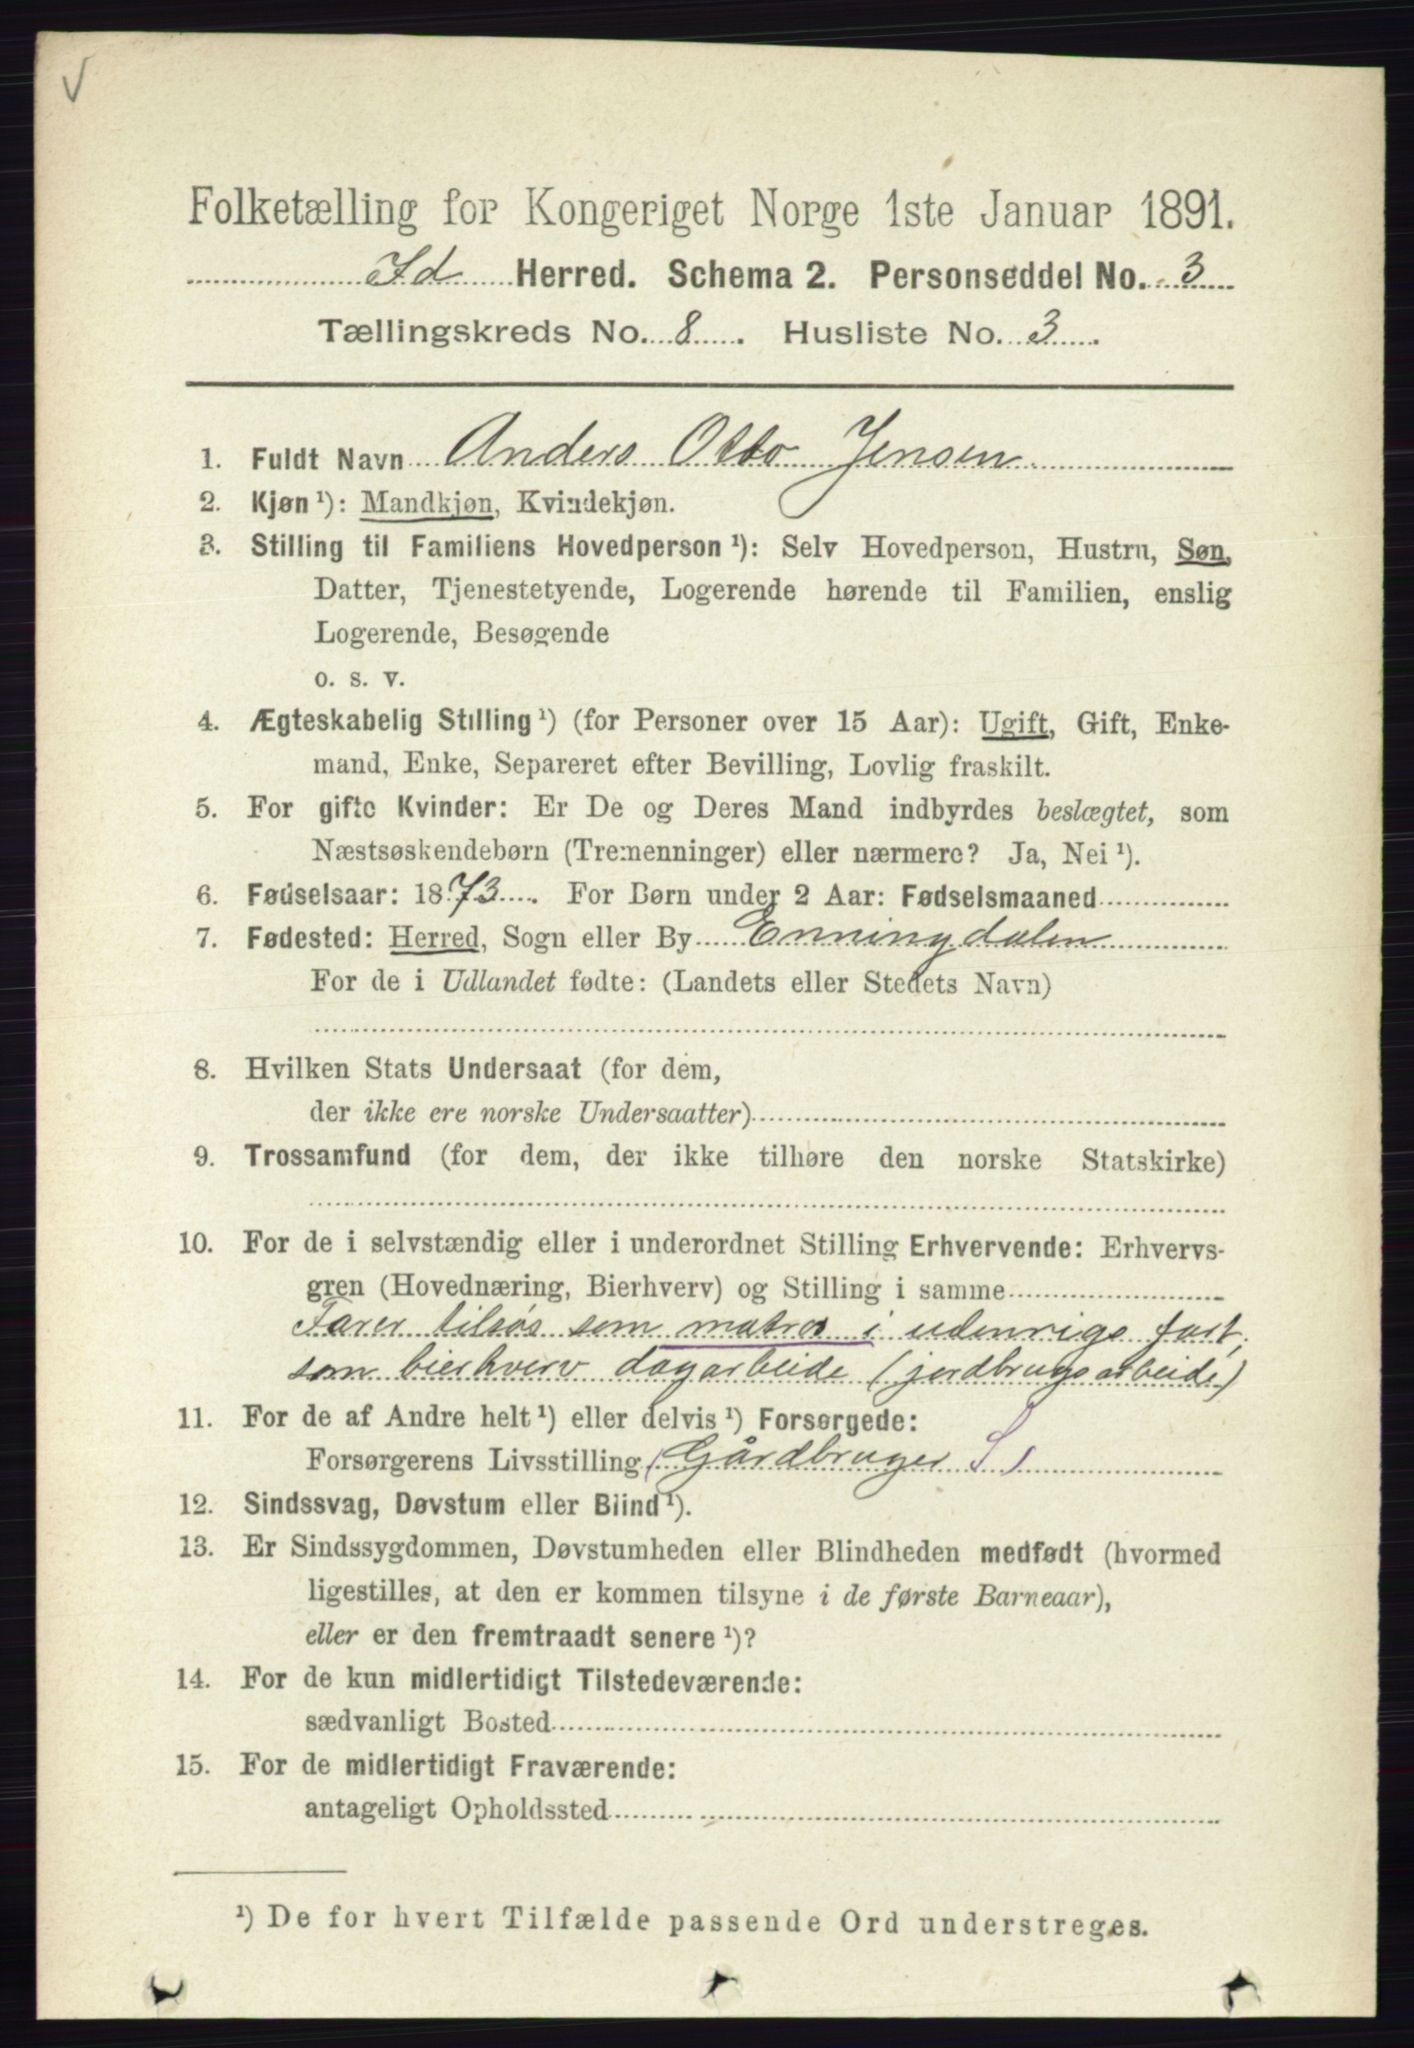 V
Folketælling for Kongeriget Norge 1ste Januar 1891.
Id Herred. Schema 2. Personseddel No. 3
Tællingskreds No. 8. Husliste No. 3.
1. Fuldt Navn Anders Otto Jensen
2. Kjøn ¹): Mandkjøn, Kvindekjøn.
3. Stilling til Familiens Hovedperson ¹): Selv Hovedperson, Hustru, Søn,
Datter, Tjenestetyende, Logerende hørende til Familien, enslig
Logerende, Besøgende
o. s. v.
4. Ægteskabelig Stilling ¹) (for Personer over 15 Aar): Ugift, Gift, Enke-
mand, Enke, Separeret efter Bevilling, Lovlig fraskilt.
5. For gifte Kvinder: Er De og Deres Mand indbyrdes beslægtet, som
Næstsøskendebørn (Tremenninger) eller nærmere? Ja, Nei ¹).
6. Fødselsaar: 1873. For Børn under 2 Aar: Fødselsmaaned
7. Fødested: Herred, Sogn eller By Enningdalen
For de i Udlandet fødte: (Landets eller Stedets Navn)
8. Hvilken Stats Undersaat (for dem,
der ikke ere norske Undersaatter)
9. Trossamfund (for dem, der ikke tilhøre den norske Statskirke)
10. For de i selvstændig eller i underordnet Stilling Erhvervende: Erhvervs-
gren (Hovednæring, Bierhverv) og Stilling i samme
Farer tilsøs som matros i udenrigs fart,
som bierhverv dagarbeide (jordbrugsarbeide)
11. For de af Andre helt ¹) eller delvis ¹) Forsørgede:
Forsørgerens Livsstilling (Gårdbruger S)
12. Sindssvag, Døvstum eller Blind ¹).
13. Er Sindssygdommen, Døvstumheden eller Blindheden medfødt (hvormed
ligestilles, at den er kommen tilsyne i de første Barneaar),
eller er den fremtraadt senere ¹)?
14. For de kun midlertidigt Tilstedeværende:
sædvanligt Bosted
15. For de midlertidigt Fraværende:
antageligt Opholdssted
¹) De for hvert Tilfælde passende Ord understreges.